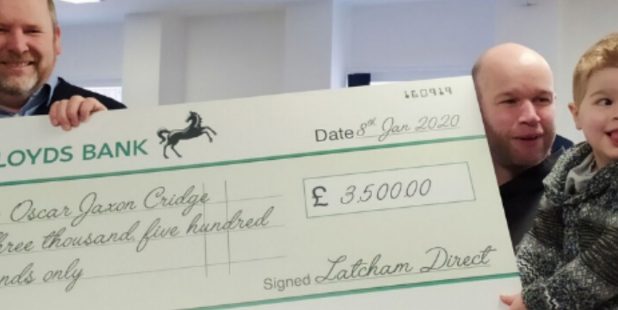 160919
LOYDS BANK
Date 8th Jan 2020
Oscar Jaxon Cridge
£ 3,500.00
hree thousand, five hundred
nds only
Signed Latcham Direct